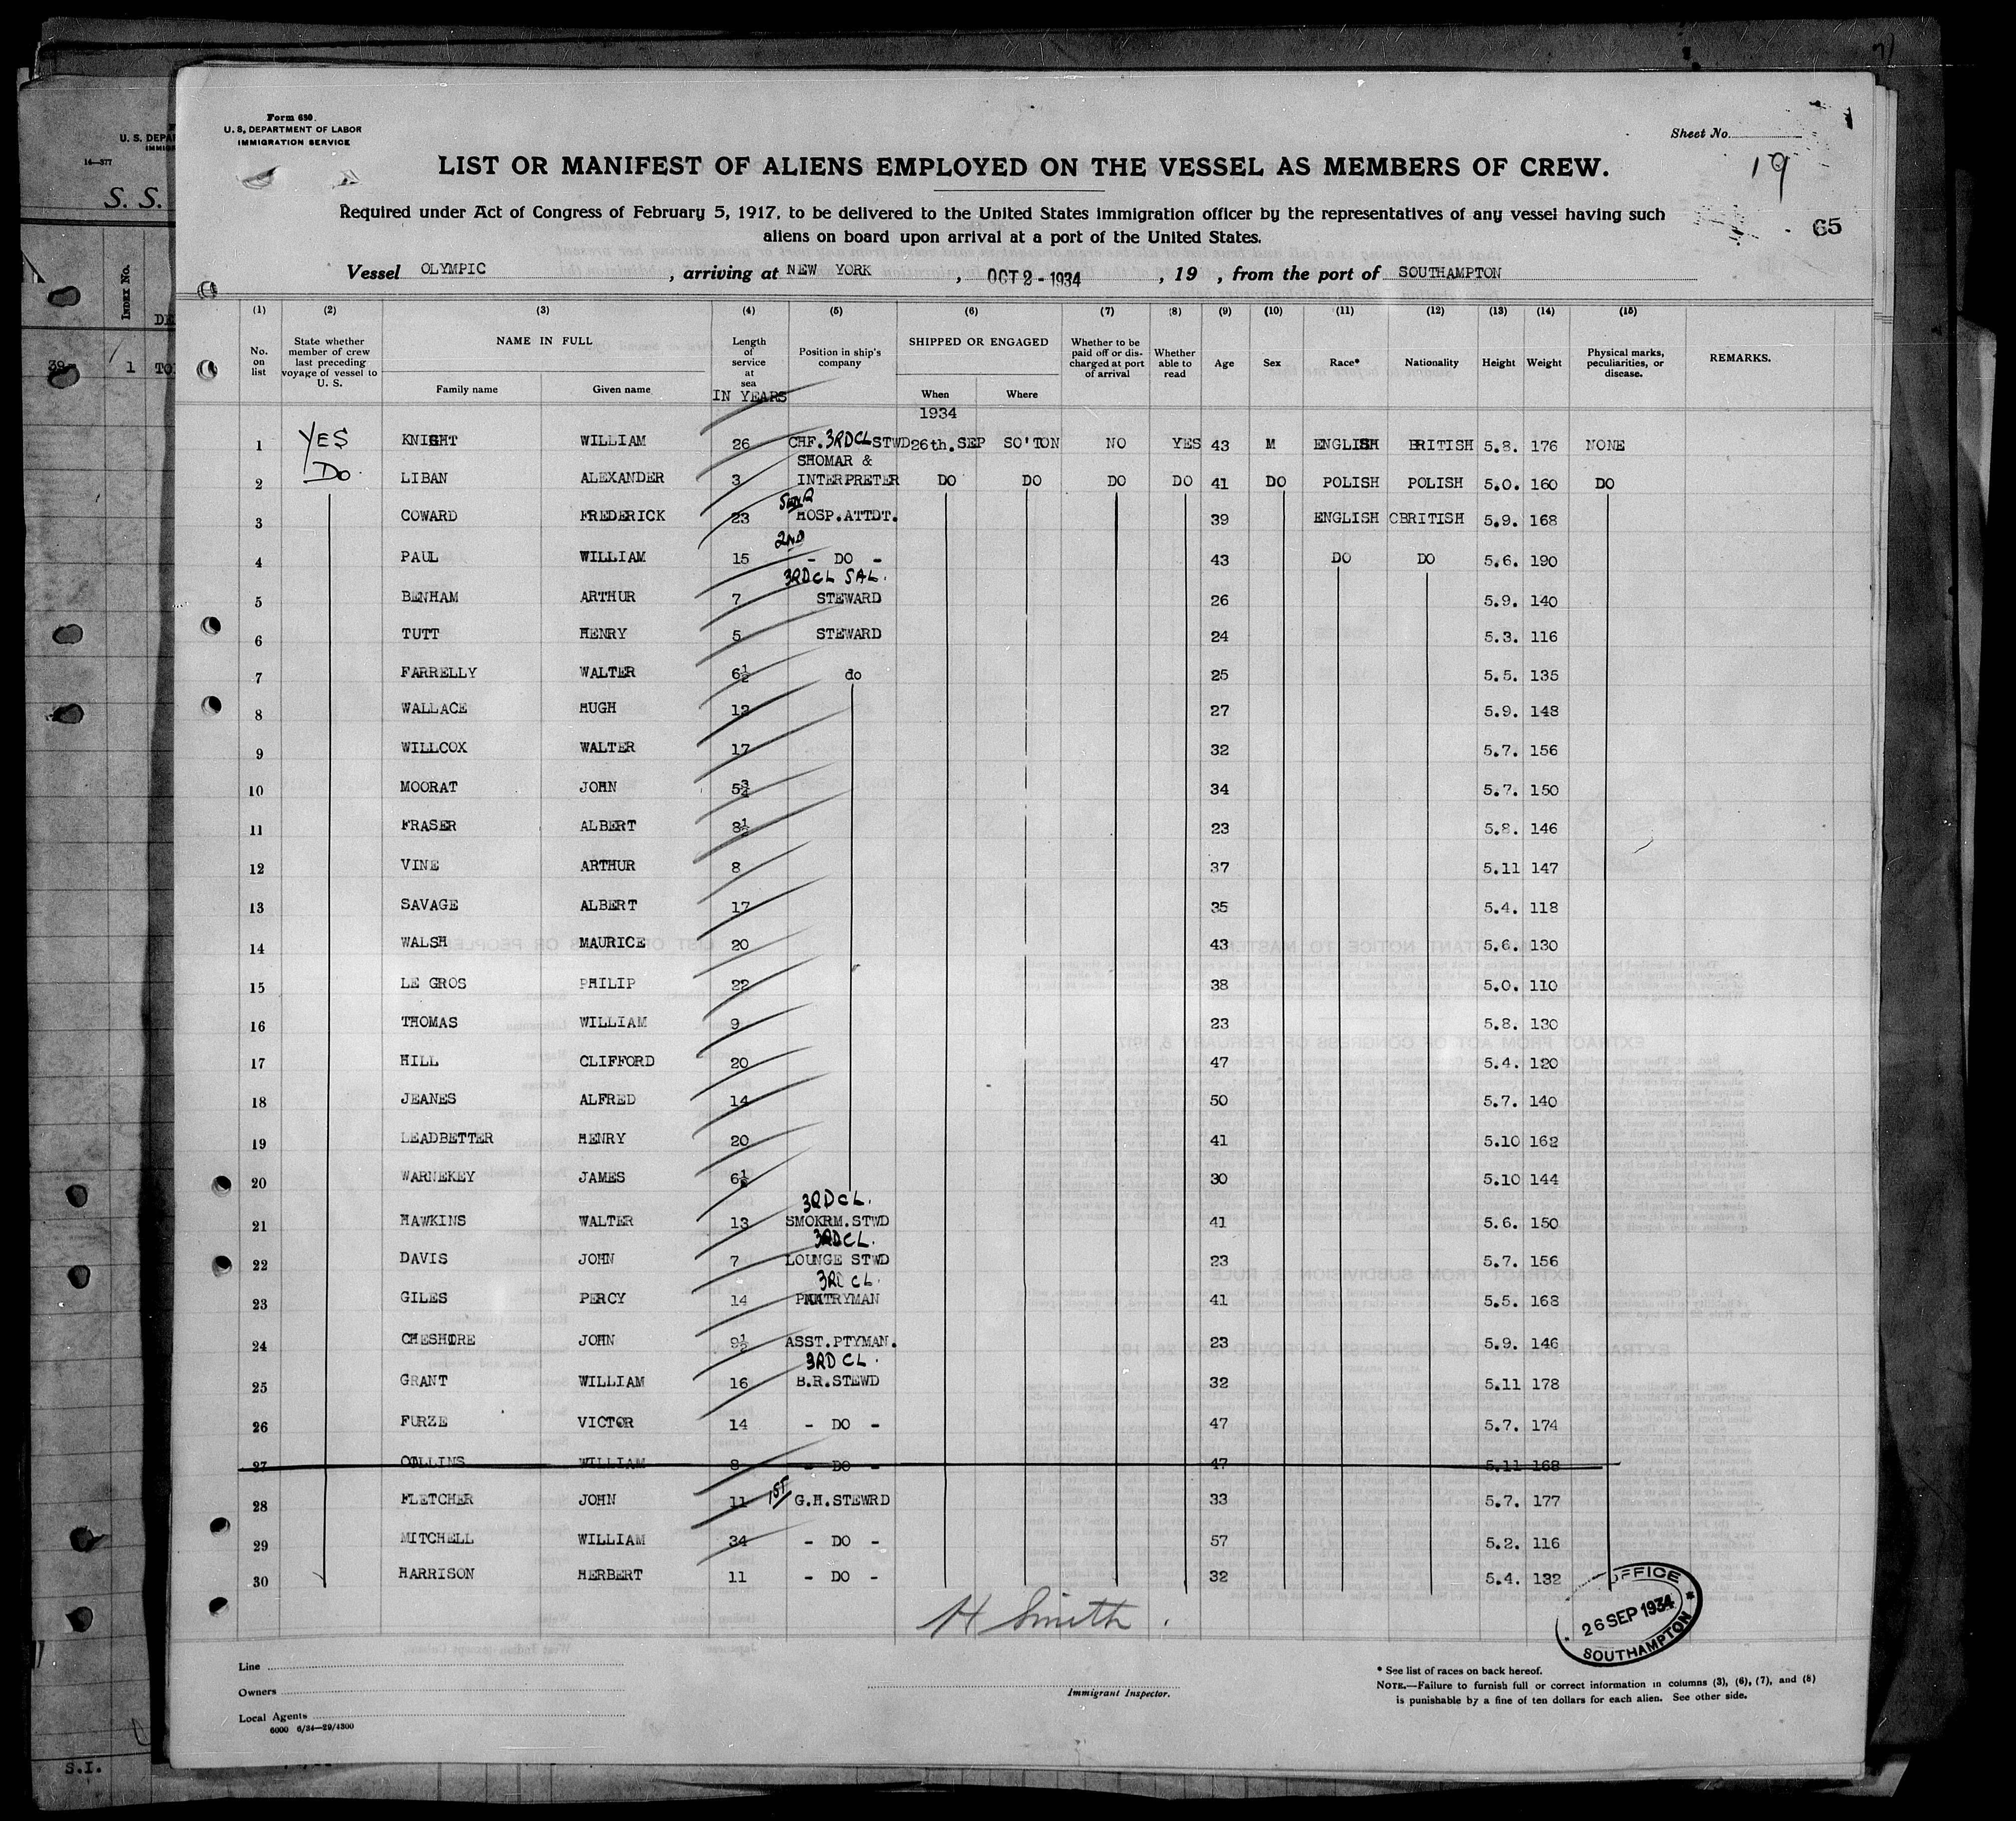 Form 630.
U. S. DEPARTMENT OF LABOR
IMMIGRATION SERVICE
Sheet No.
19
65
LIST OR MANIFEST OF ALIENS EMPLOYED ON THE VESSEL AS MEMBERS OF CREW.
Required under Act of Congress of February 5, 1917, to be delivered to the United States immigration officer by the representatives of any vessel having such
aliens on board upon arrival at a port of the United States.
Vessel OLYMPIC , arriving at NEW YORK , OCT 2 - 1934 , 19 , from the port of SOUTHAMPTON
(1) (2) (3) (4) (5) (6) (7) (8) (9) (10) (11) (12) (13) (14) (15)
No. on list State whether member of crew last preceding voyage of vessel to U. S. NAME IN FULL Family name Given name Length of service at sea IN YEARS Position in ship's company SHIPPED OR ENGAGED When Where Whether to be paid off or discharged at port of arrival Whether able to read Age Sex Race* Nationality Height Weight Physical marks, peculiarities, or disease. REMARKS.
1934
1 YES KNIGHT WILLIAM 26 CHF. 3RD CL STWD 26th.SEP SO'TON NO YES 43 M ENGLISH BRITISH 5.8. 176 NONE
2 DO LIBAN ALEXANDER 3 SHOMAR & INTERPRETER DO DO DO DO 41 DO POLISH POLISH 5.0. 160 DO
3 COWARD FREDERICK 23 HOSP.ATTDT. 39 ENGLISH CBRITISH 5.9. 168
4 PAUL WILLIAM 15 2ND - DO - 43 DO DO 5.6. 190
5 BENHAM ARTHUR 7 3RD CL SAL. STEWARD 26 5.9. 140
6 TUTT HENRY 5 STEWARD 24 5.3. 116
7 FARRELLY WALTER 6½ do 25 5.5. 135
8 WALLACE HUGH 12 27 5.9. 148
9 WILLCOX WALTER 17 32 5.7. 156
10 MOORAT JOHN 5¾ 34 5.7. 150
11 FRASER ALBERT 8½ 23 5.8. 146
12 VINE ARTHUR 8 37 5.11 147
13 SAVAGE ALBERT 17 35 5.4. 118
14 WALSH MAURICE 20 43 5.6. 130
15 LE GROS PHILIP 22 38 5.0. 110
16 THOMAS WILLIAM 9 23 5.8. 130
17 HILL CLIFFORD 20 47 5.4. 120
18 JEANES ALFRED 14 50 5.7. 140
19 LEADBETTER HENRY 20 41 5.10 162
20 WARNEKEY JAMES 6½ 30 5.10 144
21 HAWKINS WALTER 13 3RD CL. SMOKRM.STWD 41 5.6. 150
22 DAVIS JOHN 7 3RD CL. LOUNGE STWD 23 5.7. 156
23 GILES PERCY 14 3RD CL. PANTRYMAN 41 5.5. 168
24 CHESHIRE JOHN 9½ ASST.PTYMAN. 23 5.9. 146
25 GRANT WILLIAM 16 3RD CL. B.R.STEWD 32 5.11 178
26 FURZE VICTOR 14 - DO - 47 5.7. 174
27 COLLINS WILLIAM 8 - DO - 47 5.11 168
28 FLETCHER JOHN 11 1ST G.H.STEWRD 33 5.7. 177
29 MITCHELL WILLIAM 34 - DO - 57 5.2. 116
30 HARRISON HERBERT 11 - DO - 32 5.4. 132
H Smith.
OFFICE
26 SEP 1934
SOUTHAMPTON
Line
Owners
Local Agents
6000 6/34—29/4300
Immigrant Inspector.
* See list of races on back hereof.
NOTE.—Failure to furnish full or correct information in columns (3), (6), (7), and (8)
is punishable by a fine of ten dollars for each alien. See other side.
U. S. DEPA
14—377
S. S.
INDEX No.
1
S.I.